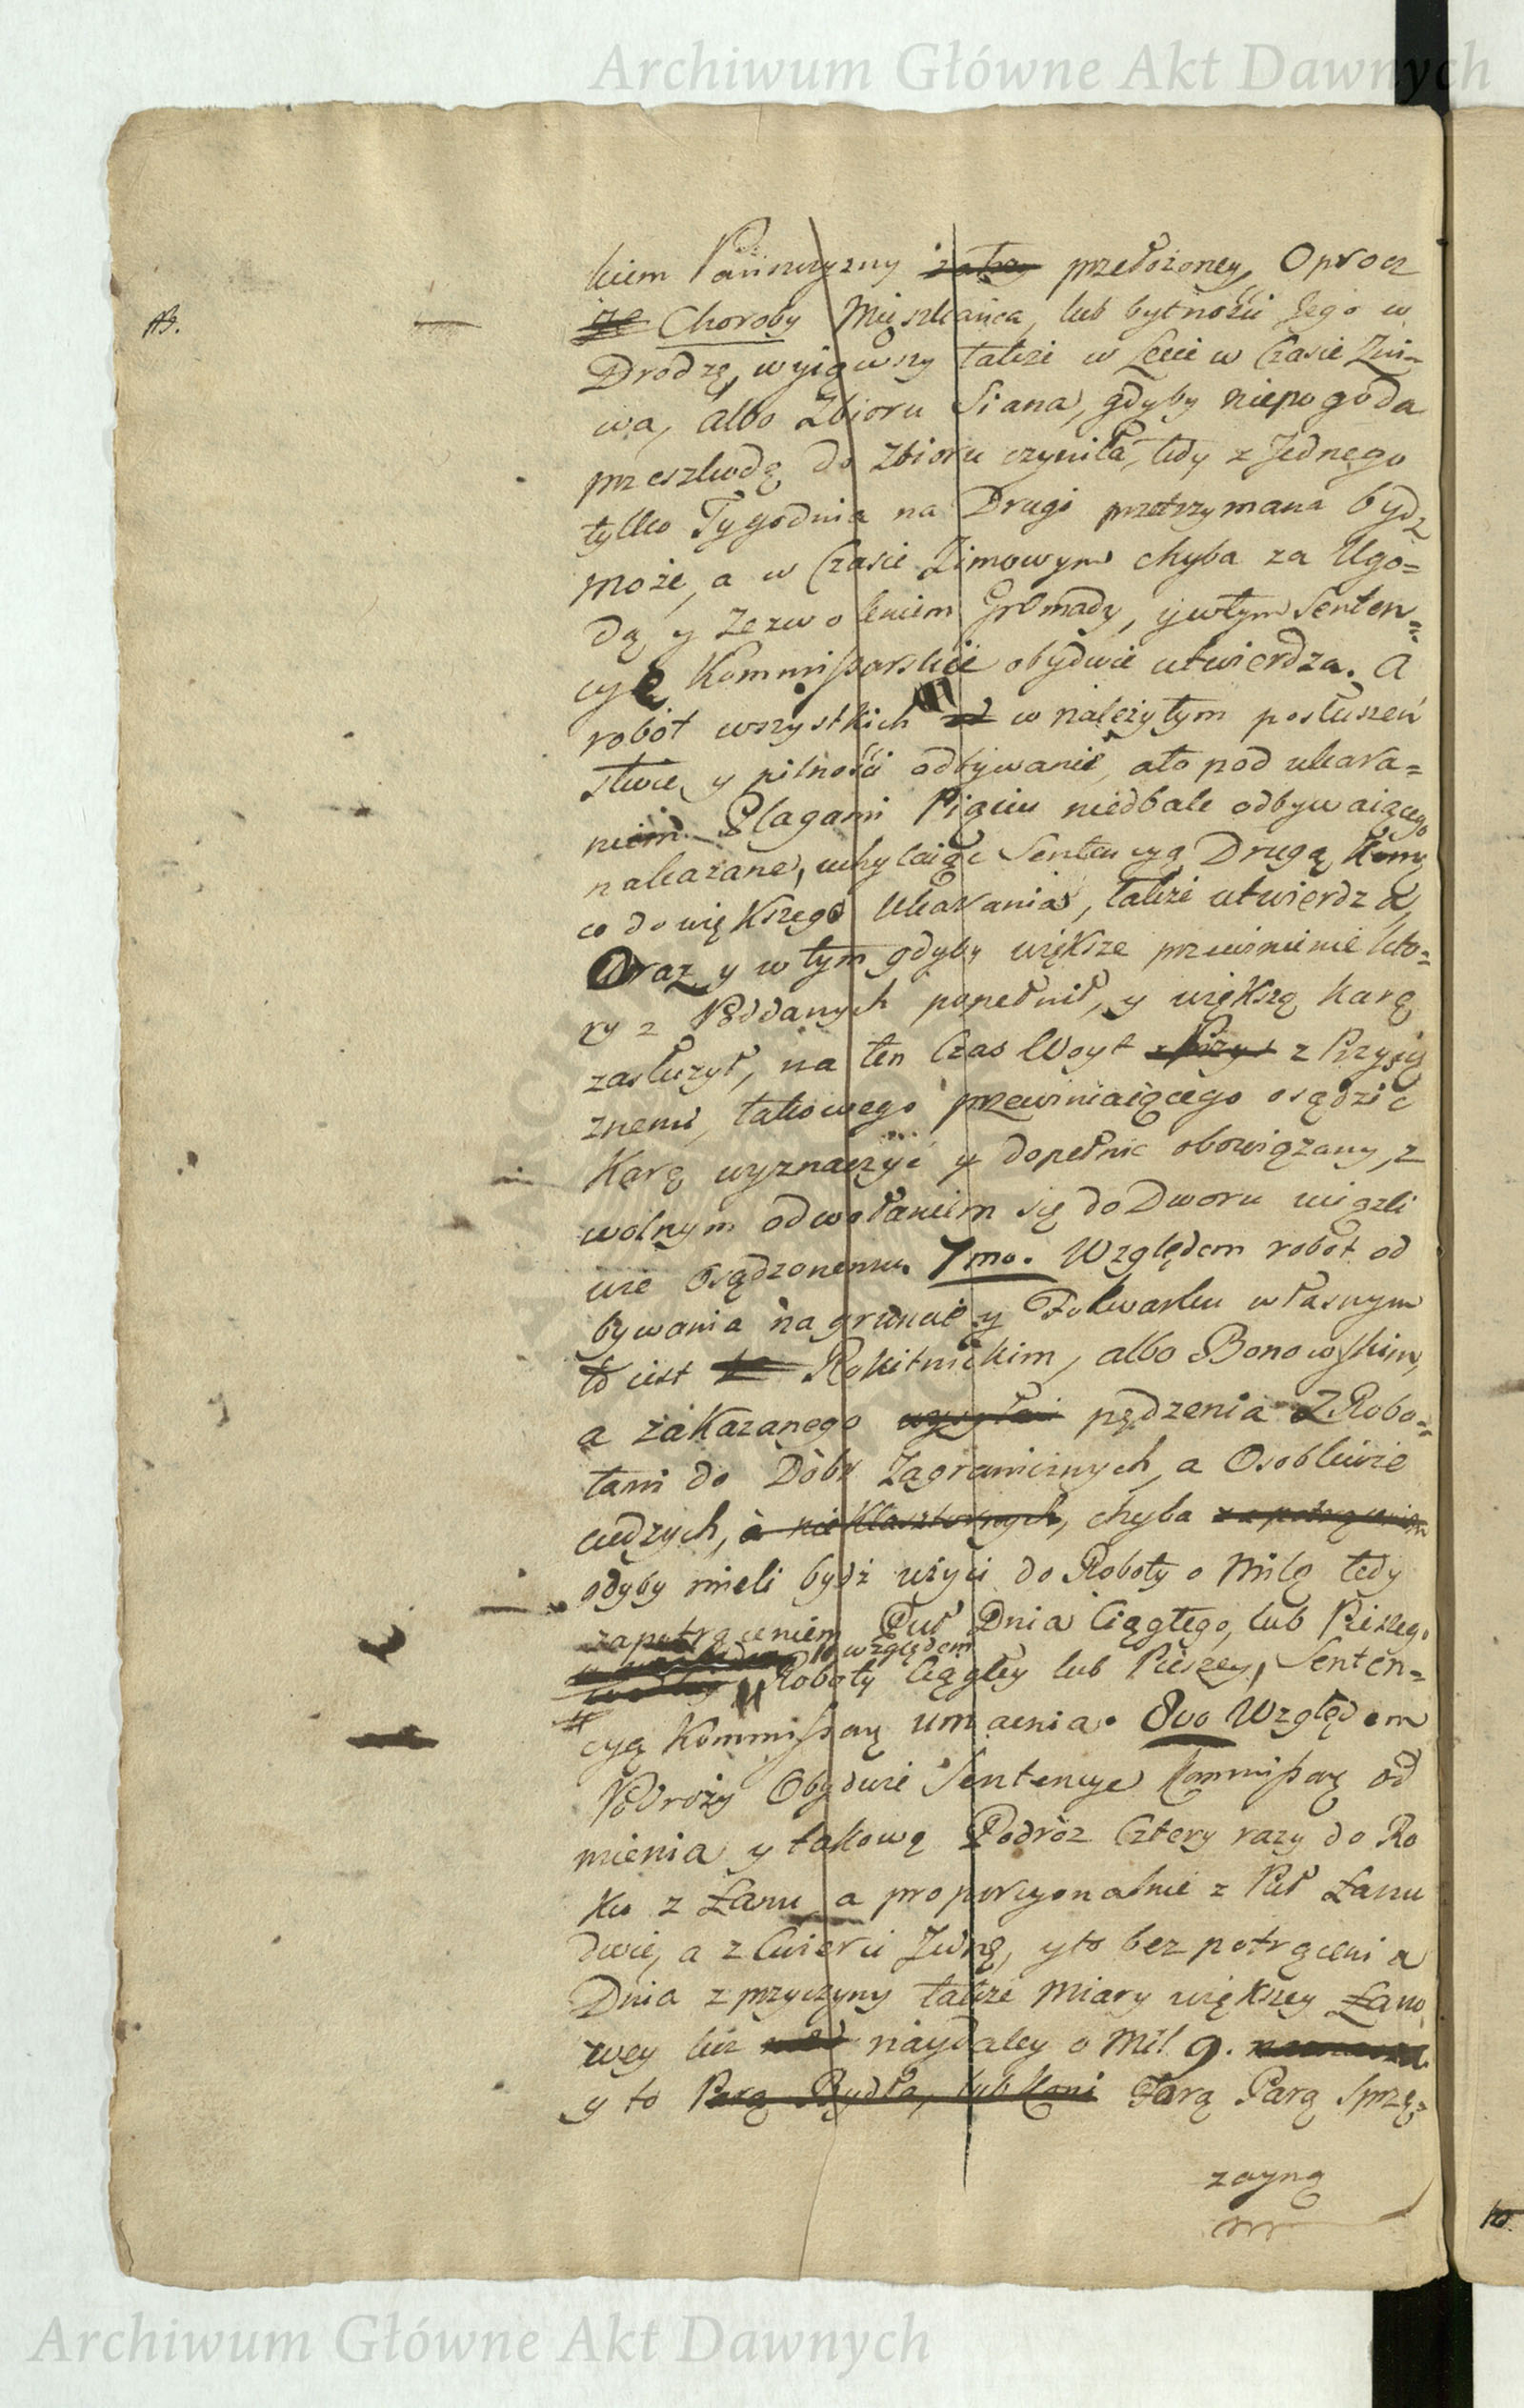 Archiwum Główne Akt Dawnych
kiem Pańszczyzny przełożoney, Oprocz
że Choroby Mieszkańca, lub bytnośći Jego w
Drodzę, wyiąwszy także w Lecie w Czasie Żni-
wa, albo Zbioru Siana, gdyby niepogoda
przeszkodę do Zbioru czyniła, tedy z Jednego
tylko Tygodnia na Drugi przetrzymana bydz
może, a w Czasie Zimowym chyba za Ugo=
dą y Zezwoleniem Gromady, y w tym Senten=
cye Kommissarskie obydwie utwierdza. A
robót wszystkich w należytym posłuszeń
stwie y pilnośći odbywanie, a to pod ukara=
niem Plagami Pięciu niedbale odbywaiącego
nakazane, uchylaiąc Sentencyą Drugą Komy
co do większego Ukarania, także utwierdza,
Oraz y w tym gdyby większe przewinienie kto=
ry z Poddanych popełnił, y większą karę
zasłużył, na ten Czas Woyt z Przysię
znemi, takowego przewiniaiącego osądzić
Karę wyznaczyć y dopełnic obowiązany, z
wolnym odwołaniem się do Dworu uiązli
wie osądzonemu. 7mo. Względem robot od
bywania na gruncie y Folwarku własnym
to iest Rokitnickim, albo Bonowskim,
a zakazanego pędzenia Z Robo=
tami do Dóbr Zagranicznych, a Osobliwie
cudzych, a nie Klasztornych, chyba
gdyby mieli bydż użyci do Roboty o Milę tedy
za potrąceniem Puł Dnia Ciągłego, lub Pieszego
względem
Roboty Ciągłey lub Pieszey, Senten=
cyą Kommissarą umacnia. 8vo Względem
Podroży Obydwie Sentencye Kommissarą od
mienia y takową Podróż Cztery razy do Ro
ku z Łanu, a proporcyonalnie z Puł Łanu
dwie, a z Cwierci Jedną, y to bez potrącenia
Dnia z przyczyny także Miary większey Łano
wey lecz naydaley o Mil 9.
y to Parą Bydła, lub Koni Parą Sprzę=
zayną
Archiwum Główne Akt Dawnych